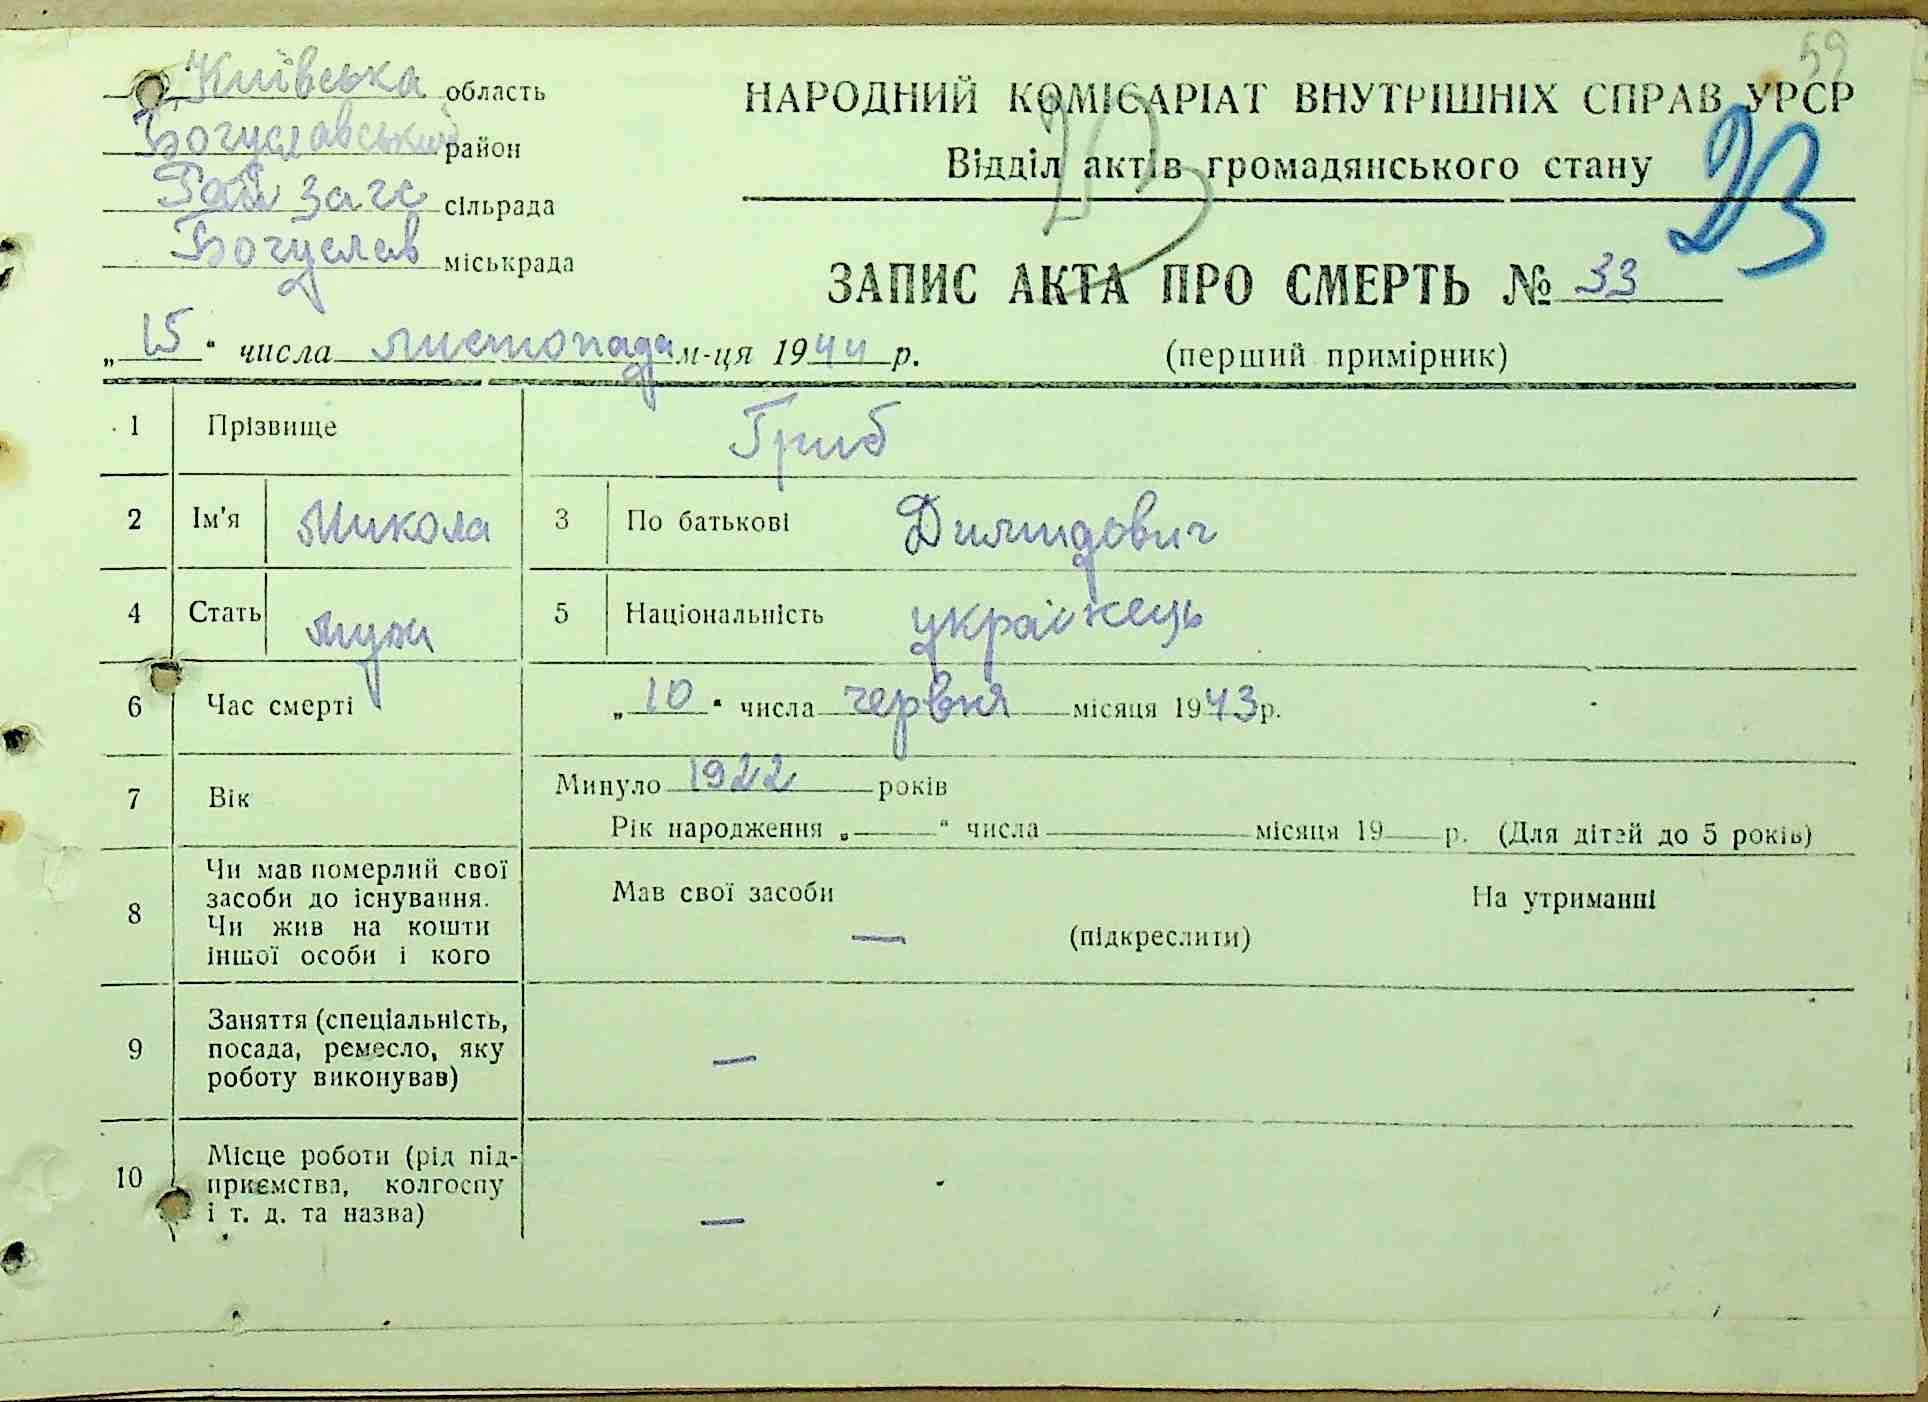 59
Київська область
НАРОДНИЙ КОМІСАРІАТ ВНУТРІШНІХ СПРАВ УРСР
Богуславський район
Відділ актів громадянського стану
23
23
Рай загс сільрада
Богуслав міськрада
ЗАПИС АКТА ПРО СМЕРТЬ № 33
„15“ числа листопада м-ця 1944 р.
(перший примірник)
1 Прізвище Гриб
2 Ім'я Микола 3 По батькові
4 Стать муж 5 Національність українець
6 Час смерті „10“ числа червня місяця 1943 р.
7 Вік Минуло 1922 років
Рік народження „ “ числа місяця 19 р. (Для дітей до 5 років)
8 Чи мав померлий свої
засоби до існування.
Чи жив на кошти
іншої особи і кого
Мав свої засоби На утриманні
— (підкреслити)
9 Заняття (спеціальність,
посада, ремесло, яку
роботу виконував)
—
10 Місце роботи (рід під-
приємства, колгоспу
і т. д. та назва)
—